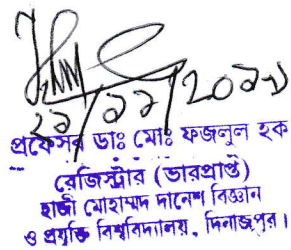 ২০২৩
প্রফেসর ডাঃ মোঃ ফজলুল হক
রেজিস্ট্রার (ভারপ্রাপ্ত)
হাজী মোহাম্মদ দানেশ বিজ্ঞান
ও প্রযুক্তি বিশ্ববিদ্যালয়, দিনাজপুর।